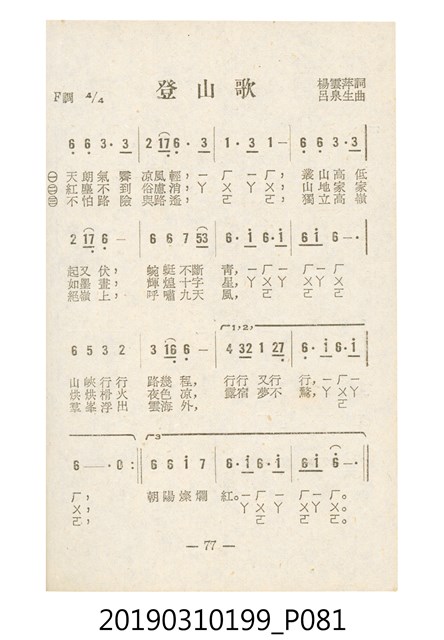 登山歌
楊雲萍詞
呂泉生曲
F調 4/4
6 6 3·3 | 2 17 6·3 | 1·3 1— | 6 6 3·3 |
㊀天朗氣霽 涼風輕，一ㄏ一，叢山高低
㊁紅塵不到 俗慮消，ㄚㄨㄚ，山地家家
㊂不怕路險 與路遙，ㄛㄛ，獨立高嶺
2 17 6— | 6 6 7 53 | 6·i 6·i | 6 i 6— |
起又伏，蜿蜒不斷 青，一ㄏ一ㄏ一。
如墨畫，輝煌十字 星，ㄚㄨㄚㄨㄚ。
絕嶺上，呼嘯九天 風，ㄛㄛ。
1,2,
6 5 3 2 | 3 16 6— | 4 32 1 27 | 6·i 6·i |
山峽行行 路幾程，行行又行 行，一ㄏ一
烘烘榾火 夜色凉，露宿夢不 驚，ㄚㄨㄚ
羣峯浮出 雲海外，ㄛ
3
6—·0 :| 6 6 i 7 | 6·i 6·i | 6 i 6— |
ㄏ，朝陽燦爛 紅。一ㄏ一ㄏ一ㄏ。
ㄨ，ㄚㄨㄚㄨㄚㄨ。
ㄛ，ㄛㄛㄛ。
— 77 —
20190310199_P081